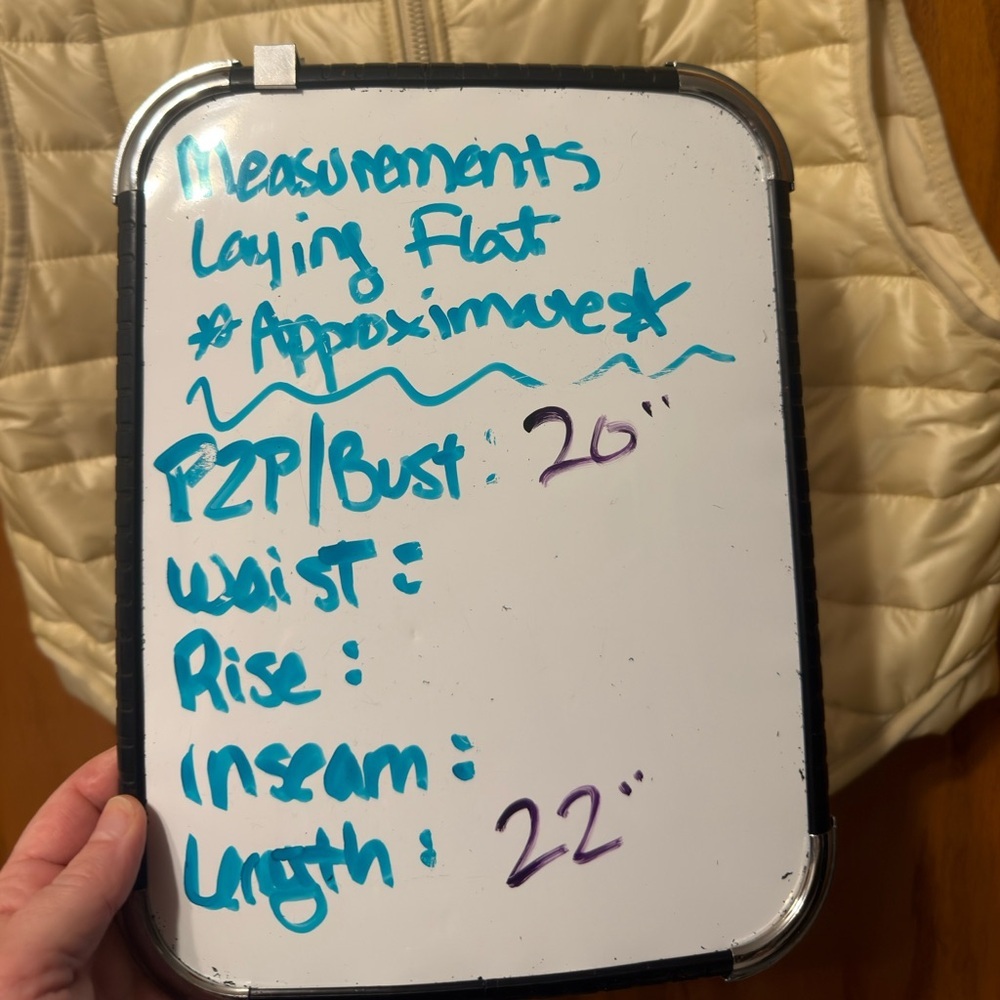 Measurements
Laying Flat
*Approximates*
P2P/Bust: 20"
Waist:
Rise:
Inseam:
Length: 22"